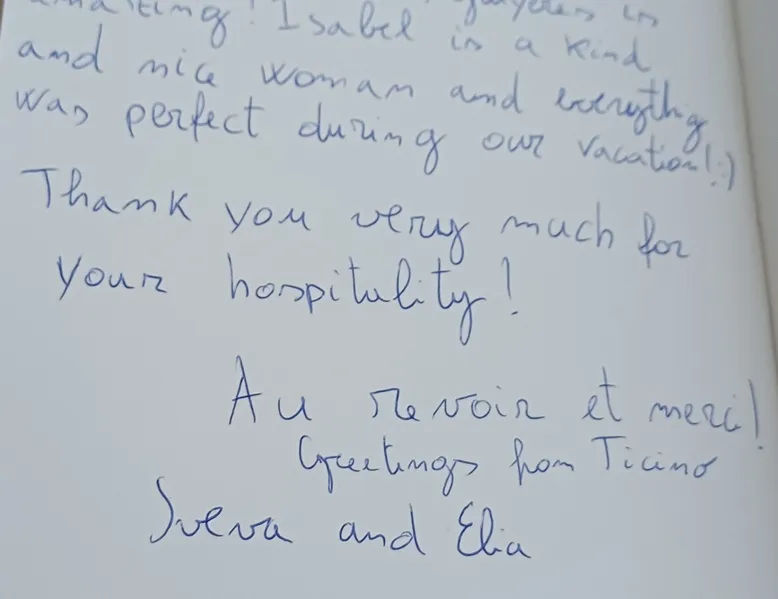 Isabel is a kind
and nice woman and everythig
was perfect during our vacation! :)
Thank you very much for
your hospitality!
Au revoir et merci!
Greetings from Ticino
Sveva and Elia